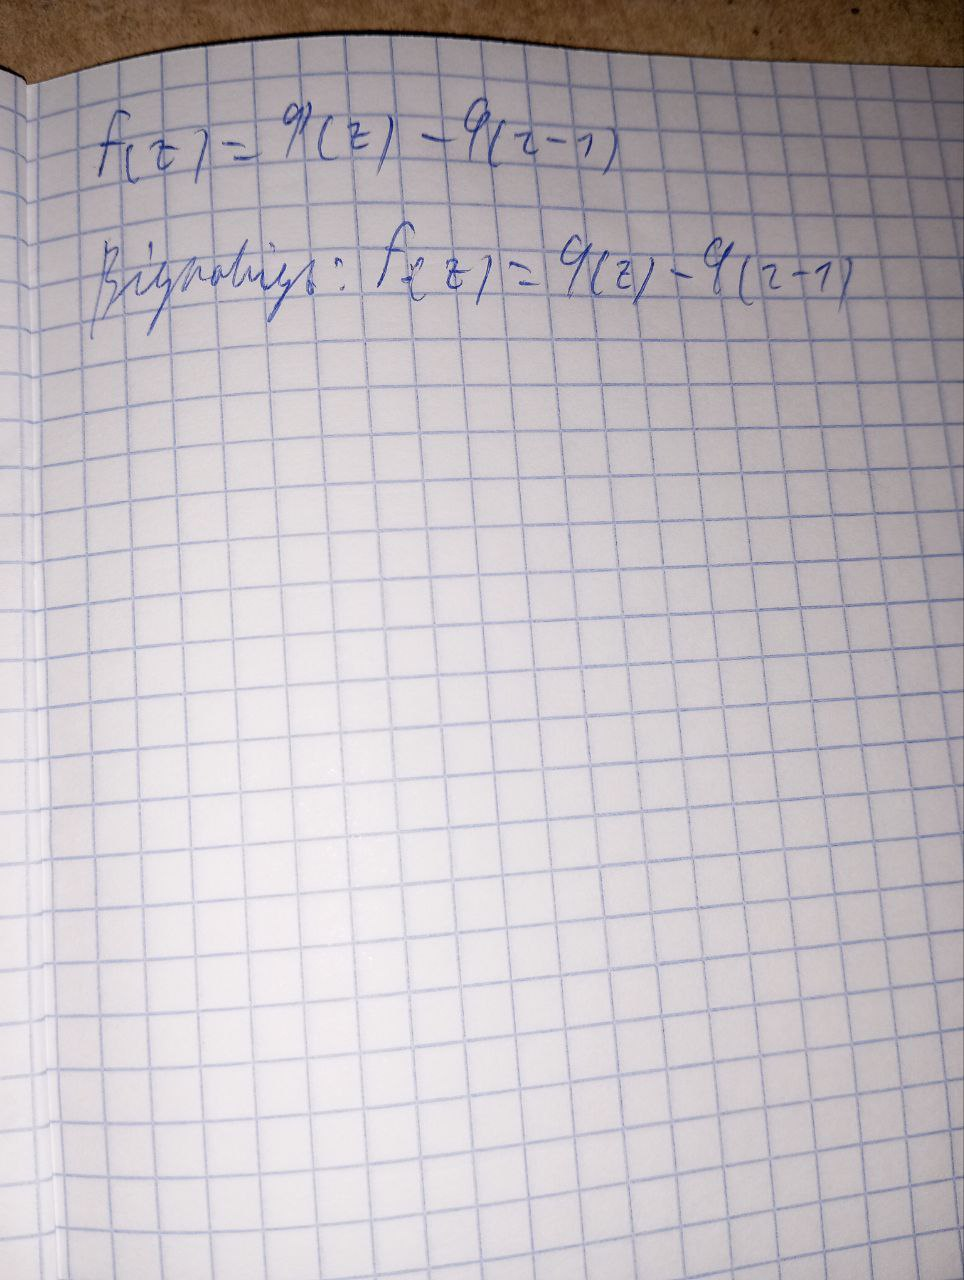 f(z) = φ(z) - φ(z-1)
Відповідь: f(z) = φ(z) - φ(z-1)